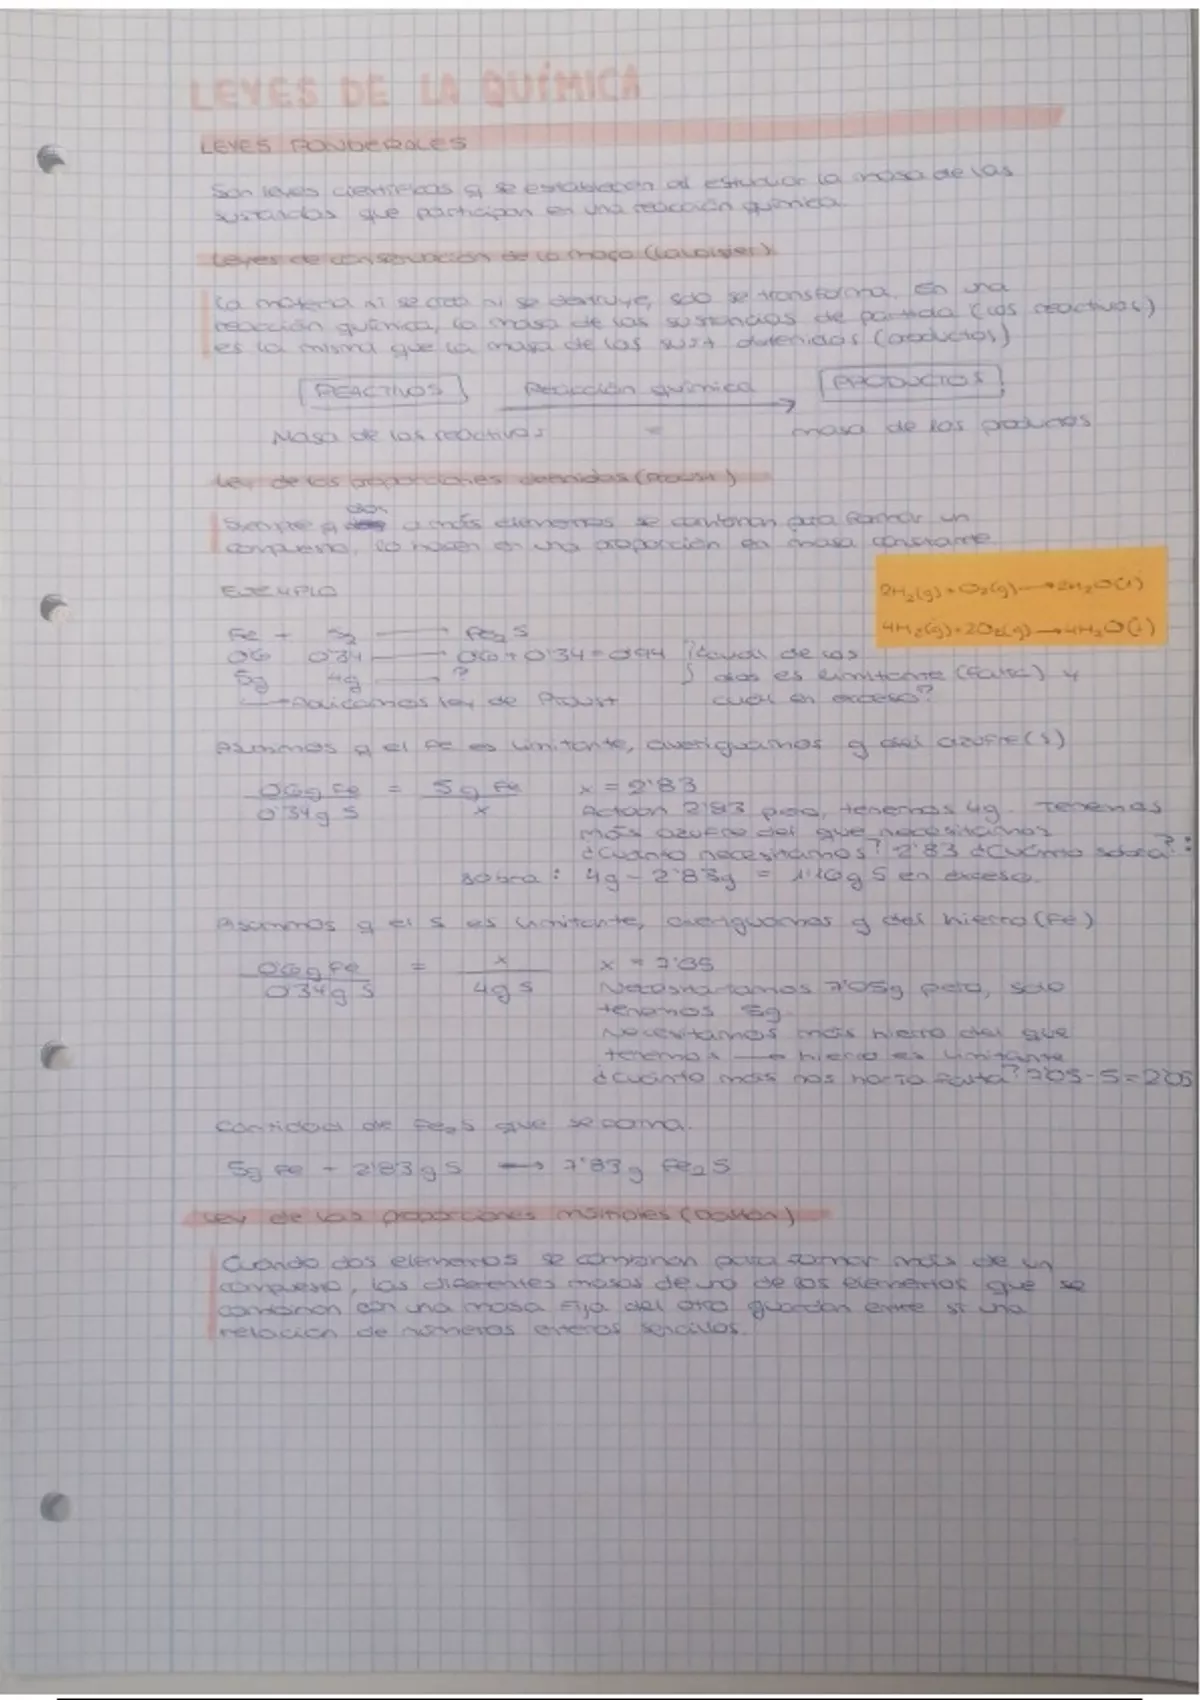 LEYES DE LA QUÍMICA
LEYES PONDERALES
Son leyes científicas q se establecen al estudiar la masa de las
sustancias que participan en una reacción química
Leyes de conservación de la masa (Lavoisier)
La materia ni se crea ni se destruye, solo se transforma. En una
reacción química, la masa de las sustancias de partida (los reactivos)
es la misma que la masa de las sust obtenidas (productos)
REACTIVOS Reacción química PRODUCTOS
Masa de los reactivos = masa de los productos
Ley de las proporciones definidas (Proust)
dos
Siempre q o más elementos se combinan para formar un
compuesto, lo hacen en una proporción en masa constante
EJEMPLO
2H₂(g) + O₂(g) → 2H₂O(l)
4H₂(g) + 2O₂(g) → 4H₂O(l)
Fe + S₂ → Fe₂S
0'6 0'34 → 0'6 + 0'34 = 0'94 ¿Cuál de los
5g 4g → ? dos es limitante (falta) y
→ Aplicamos ley de Proust cuál en exceso?
Asumimos q el Fe es limitante, averiguamos g del azufre (S)
0'6g Fe = 5g Fe x = 2'83
0'34g S x 2'83 pero, tenemos 4g. Tenemos
más azufre del que necesitamos
¿Cuánto necesitamos? 2'83 ¿Cuánto sobra?:
sobra: 4g - 2'83g = g S en exceso.
Asumimos q el S es limitante, averiguamos g del hierro (Fe)
0'6g Fe = x x = 7'05
0'34g S 4g S Necesitaríamos 7'05g pero, solo
tenemos 5g.
Necesitamos más hierro del que
tenemos → hierro es limitante
¿Cuánto más nos haría falta? 7'05 - 5 = 2'05
Cantidad de Fe₂S que se forma.
5g Fe + 2'83g S → 7'83g Fe₂S
Ley de las proporciones múltiples (Dalton)
Cuando dos elementos se combinan para formar más de un
compuesto, las diferentes masas de uno de los elementos que se
combinan con una masa fija del otro guardan entre sí una
relación de números enteros sencillos.